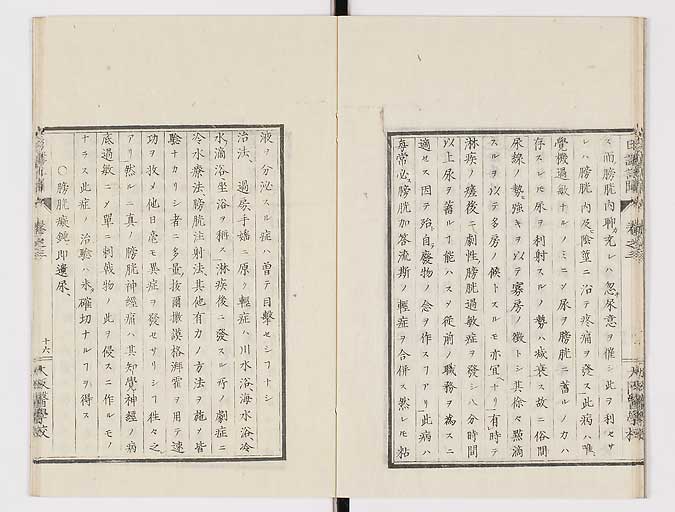 ス而膀胱内聊充レハ忽尿意ヲ催シ此ヲ利セサ
レハ膀胱内及陰莖ニ沿テ疼痛ヲ發ス此病ハ唯
覺機過敏ナルノミニソ尿ヲ膀胱ニ蓄ルノカハ
存スレモ尿ヲ利射スルノ勢ハ減衰ス故ニ俗間
尿線ノ勢強キヲ以テ寡房ノ徴トシ其徐々點滴
スルヲ以テ多房ノ候トスルモ亦宜ナリ有時テ
淋疾ノ後ニ劇性膀胱過敏症ヲ發シ八分時間
以上尿ヲ蓄ルフ能ハスソ從前ノ職務ヲ為スニ
適セス因テ殆自廢物ノ念ヲ作スフアリ此病ハ
毎常必膀胱加答流斯ノ輕症ヲ合併ス然レモ粘
液ヲ分泌スル症ハ曽テ目擊セシフナシ
治法 過房手婬ニ原ク輕症ハ川水浴海水浴冷
水滴浴坐浴ヲ稱ス淋疾後ニ發スル所ノ劇症ニ
冷水療法膀胱注射法其他有力ノ方法ヲ施メ皆
驗ナカリシ者ニ多量ヲ用テ速
功ヲ收メ他日毫モ異症ヲ發セサリシフ往々之
アリ然ルニ真ノ膀胱神經痛ハ其知覺神經ノ病
底過敏ニソ單ニ刺戟物ノ此ヲ侵スニ作ルモノ
ナラス此症ノ治驗ハ未確切ナルフヲ得ス
○膀胱痲鈍即遺尿
卷之三
十六
大阪醫學校